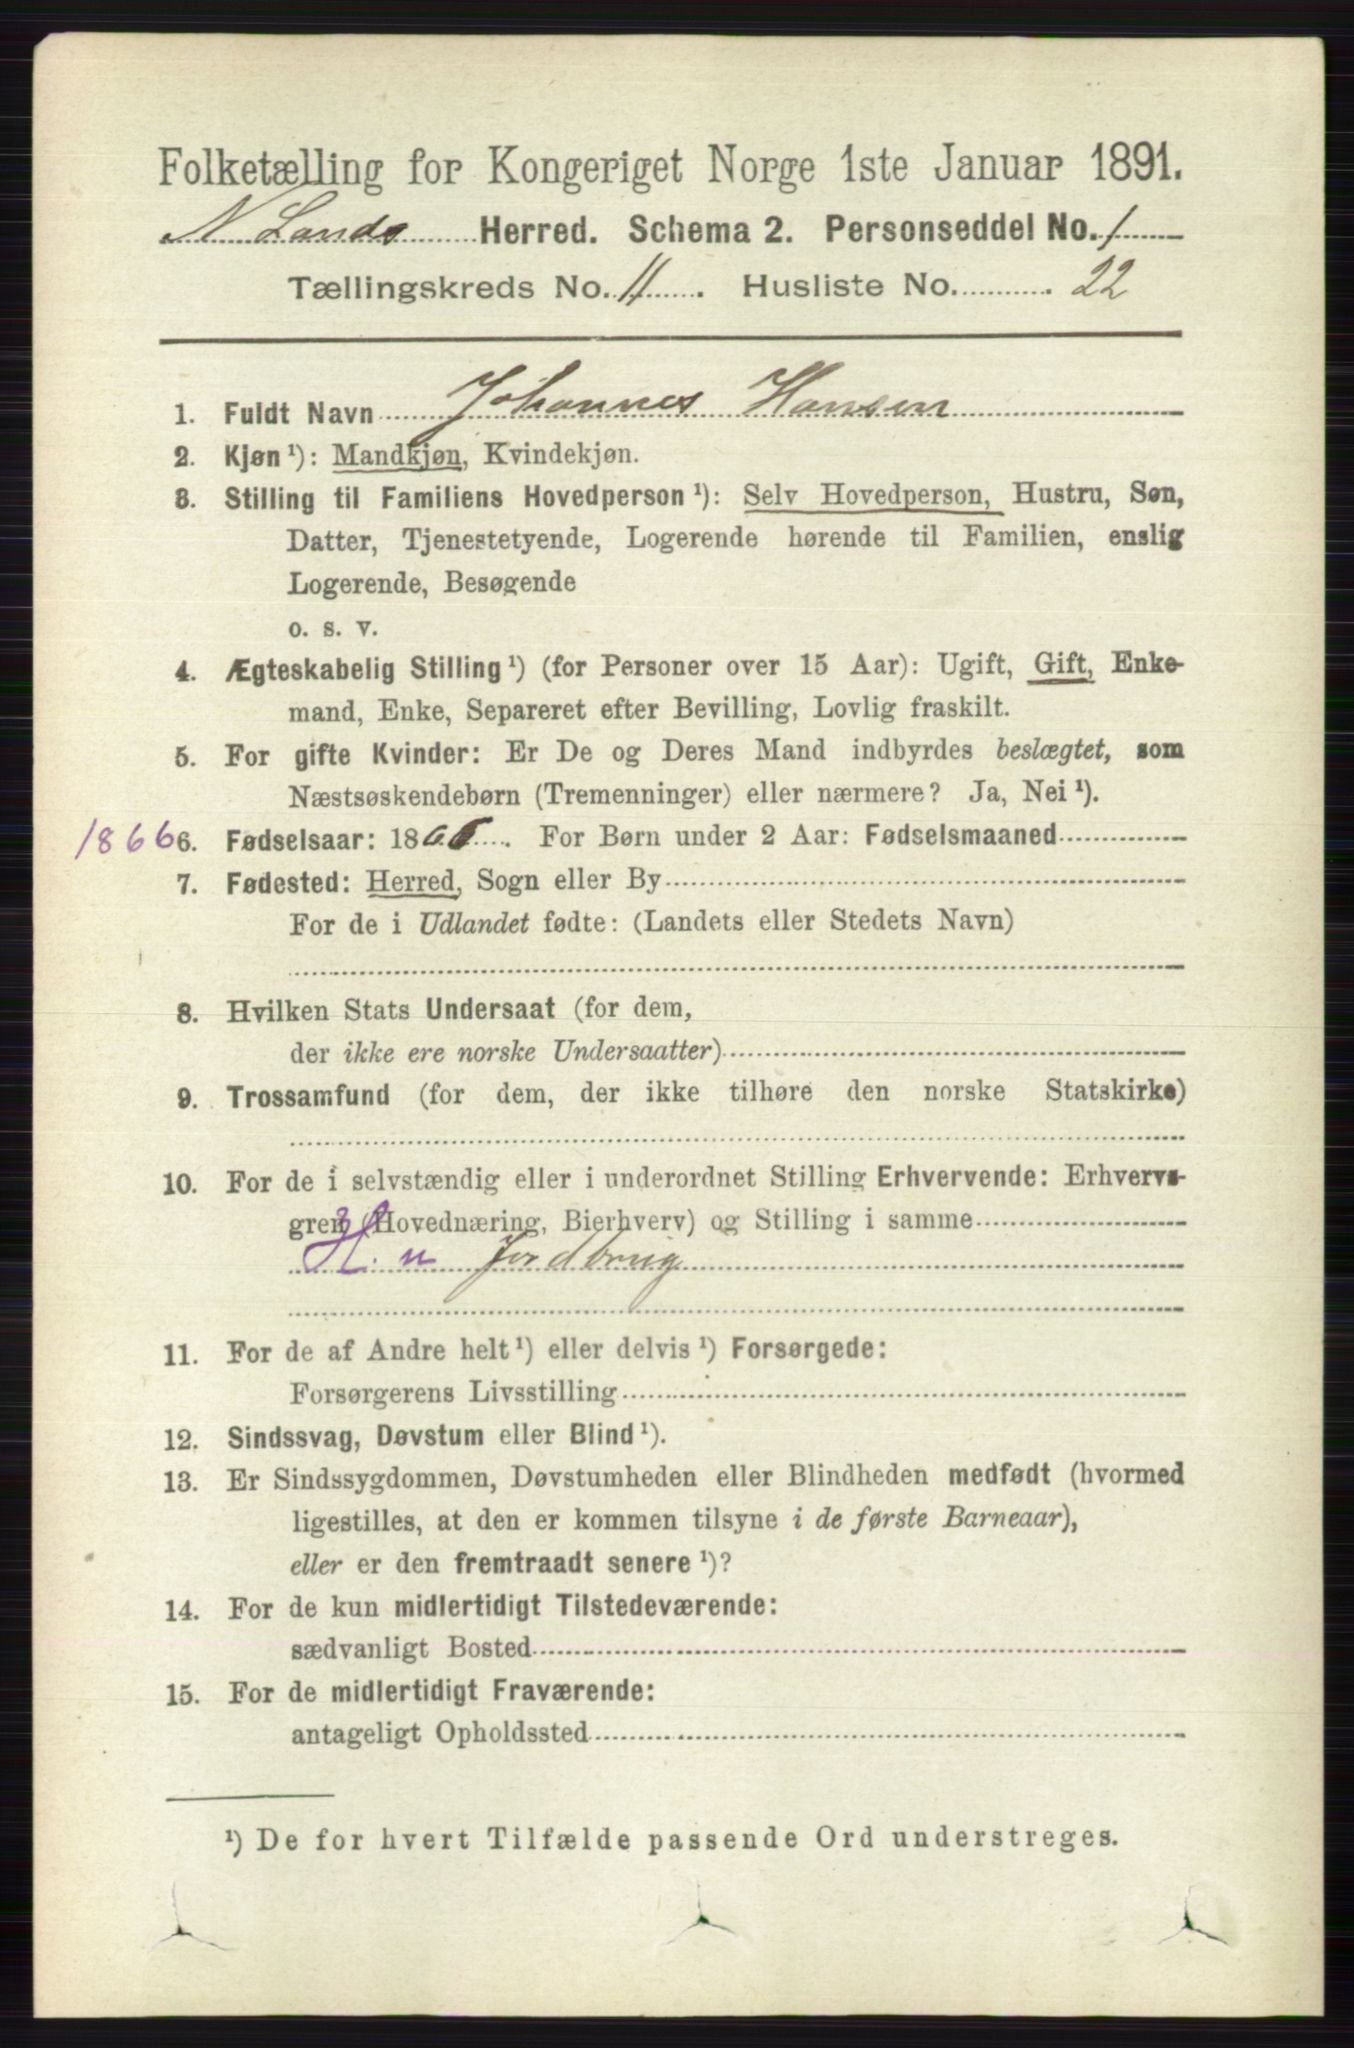 Folketælling for Kongeriget Norge 1ste Januar 1891.
N Lands Herred. Schema 2. Personseddel No. 1
Tællingskreds No. 11. Husliste No. 22
1. Fuldt Navn Johannes Hansen
2. Kjøn ¹): Mandkjøn, Kvindekjøn.
3. Stilling til Familiens Hovedperson ¹): Selv Hovedperson, Hustru, Søn,
Datter, Tjenestetyende, Logerende hørende til Familien, enslig
Logerende, Besøgende
o. s. v.
4. Ægteskabelig Stilling ¹) (for Personer over 15 Aar): Ugift, Gift, Enke-
mand, Enke, Separeret efter Bevilling, Lovlig fraskilt.
5. For gifte Kvinder: Er De og Deres Mand indbyrdes beslægtet, som
Næstsøskendebørn (Tremenninger) eller nærmere? Ja, Nei ¹).
1866 6. Fødselsaar: 1866. For Børn under 2 Aar: Fødselsmaaned
7. Fødested: Herred, Sogn eller By
For de i Udlandet fødte: (Landets eller Stedets Navn)
8. Hvilken Stats Undersaat (for dem,
der ikke ere norske Undersaatter)
9. Trossamfund (for dem, der ikke tilhøre den norske Statskirke)
10. For de i selvstændig eller i underordnet Stilling Erhvervende: Erhvervs-
gren (Hovednæring, Bierhverv) og Stilling i samme
Jordbrug
11. For de af Andre helt ¹) eller delvis ¹) Forsørgede:
Forsørgerens Livsstilling
12. Sindssvag, Døvstum eller Blind ¹).
13. Er Sindssygdommen, Døvstumheden eller Blindheden medfødt (hvormed
ligestilles, at den er kommen tilsyne i de første Barneaar),
eller er den fremtraadt senere ¹)?
14. For de kun midlertidigt Tilstedeværende:
sædvanligt Bosted
15. For de midlertidigt Fraværende:
antageligt Opholdssted
¹) De for hvert Tilfælde passende Ord understreges.